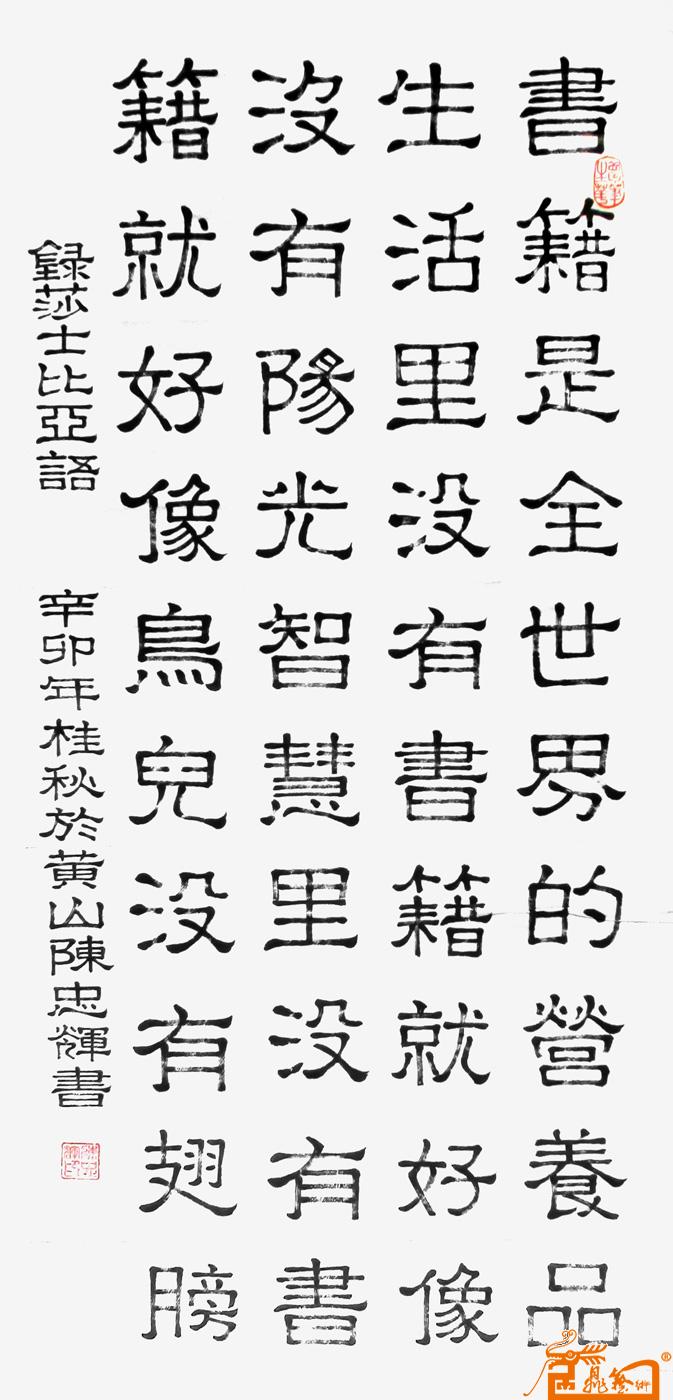 書籍是全世界的營養品
生活里没有書籍就好像
没有陽光智慧里没有書
籍就好像鳥兒没有翅膀
録莎士比亞語
辛卯年桂秋於黄山陳忠輝書